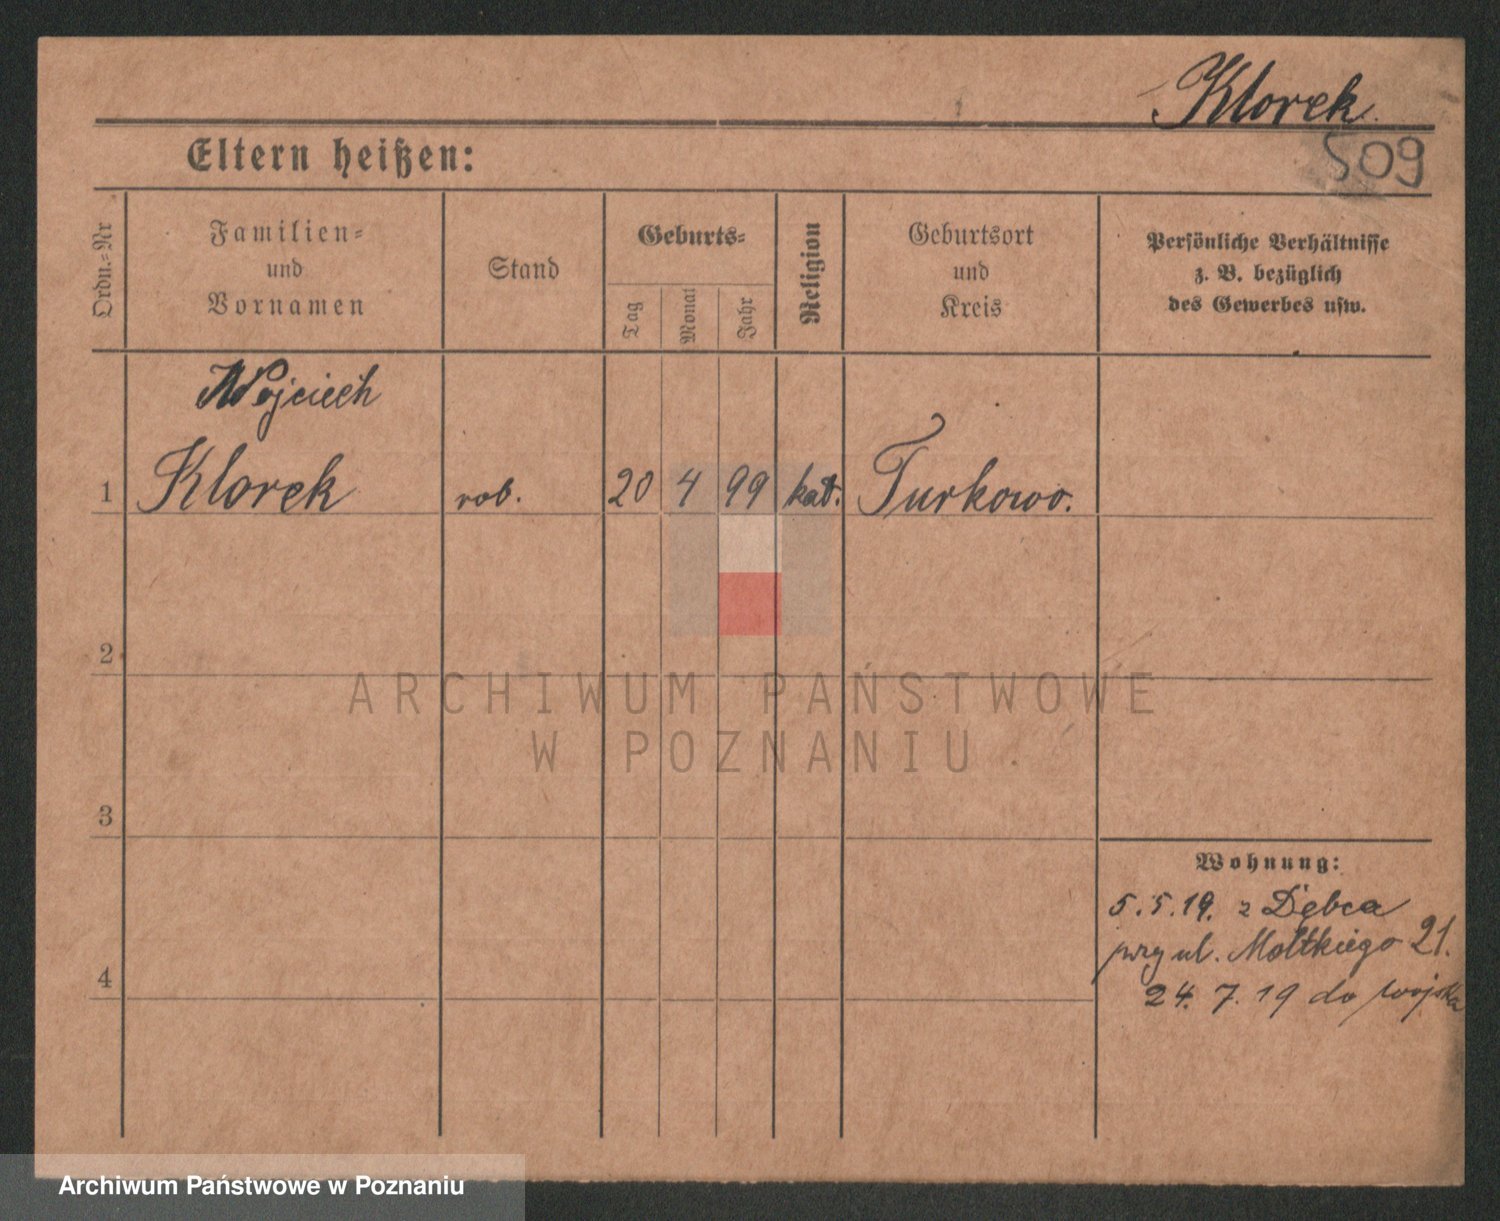 Klorek.
509
Eltern heißen:
Ordn.=Nr
Familien=
und
Vornamen
Stand
Geburts=
Tag
Monat
Jahr
Religion
Geburtsort
und
Kreis
Persönliche Verhältnisse
z. B. bezüglich
des Gewerbes usw.
Wojciech
1 Klorek rob. 20 4 99 kat. Turkowo.
2
ARCHIWUM PAŃSTWOWE
W POZNANIU
3
Wohnung:
5.5.19. z Dębca
przy ul. Moltkiego 21.
4
24. 7. 19 do wojska
Archiwum Państwowe w Poznaniu